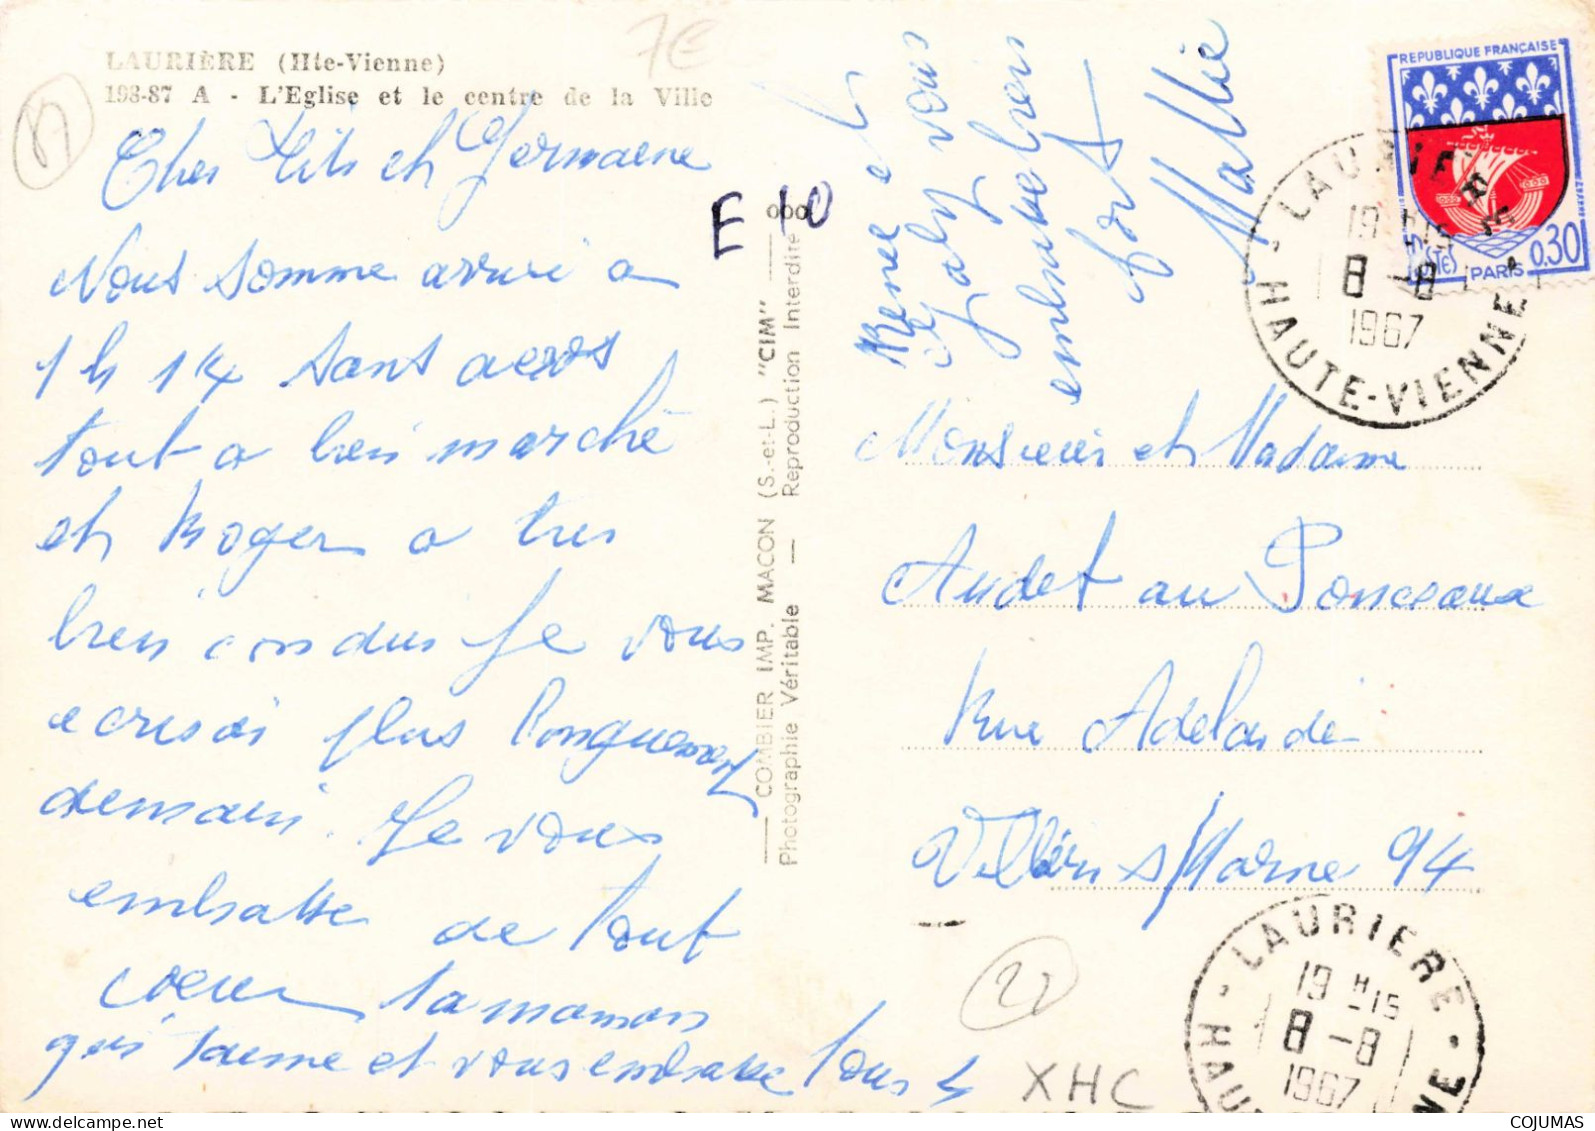 LAURIÈRE (Hte-Vienne)
198-87 A - L'Eglise et le centre de la Ville
7€
Cher et Germaene
Nous somme arrivé a
1 h 14 sans acros
tout a bien marché
et Roger a tres
bien condus Je vous
ecrirai plus longuement
demain. Je vous
embrasse de tout
coeur ta maman
qui t'aime et vous embrasse tous
E 10
COMBIER IMP. MACON (S.-et-L.) "CIM"
Photographie Véritable — Reproduction Interdite
René et
Gaby vous
embrasse bien
fort
REPUBLIQUE FRANÇAISE
POSTES
PARIS
0.30
LAURIERE
19 H 15
8 -8
1967
HAUTE-VIENNE
Monsieur et Madame
Audet au Ponceaux
Rue Adelaide
Villiers s/Marne 94
LAURIERE
19 H 15
8 -8
1967
XHC
COJUMAS